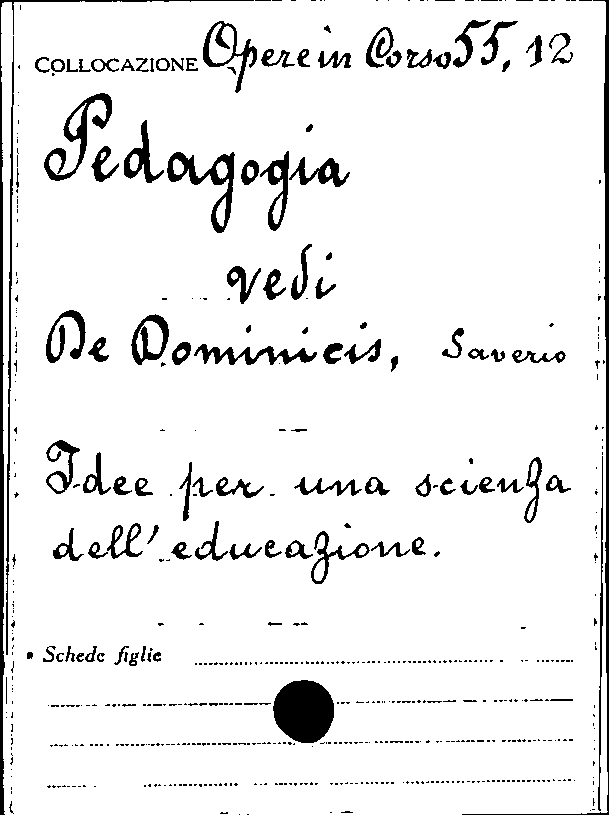 COLLOCAZIONE Opere in Corso 55, 12
Pedagogia
vedi
De Dominicis, Saverio
Idee per una scienza
dell'educazione.
Schede figlie